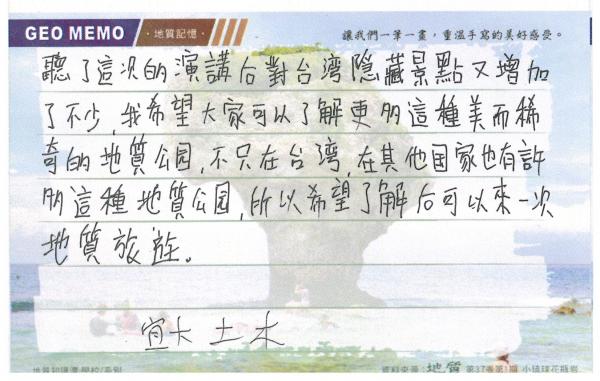 GEO MEMO ·地質記憶· 讓我們一筆一畫，重溫手寫的美好感受。
聽了這次的演講后對台湾隐藏景點又增加
了不少，我希望大家可以了解更多這種美而稀
奇的地質公园，不只在台湾，在其他国家也有許
多這種地質公园，所以希望了解后可以來一次
地質旅遊。
宜大土木
資料來源：地質 第37卷第1期 小琉球花瓶岩